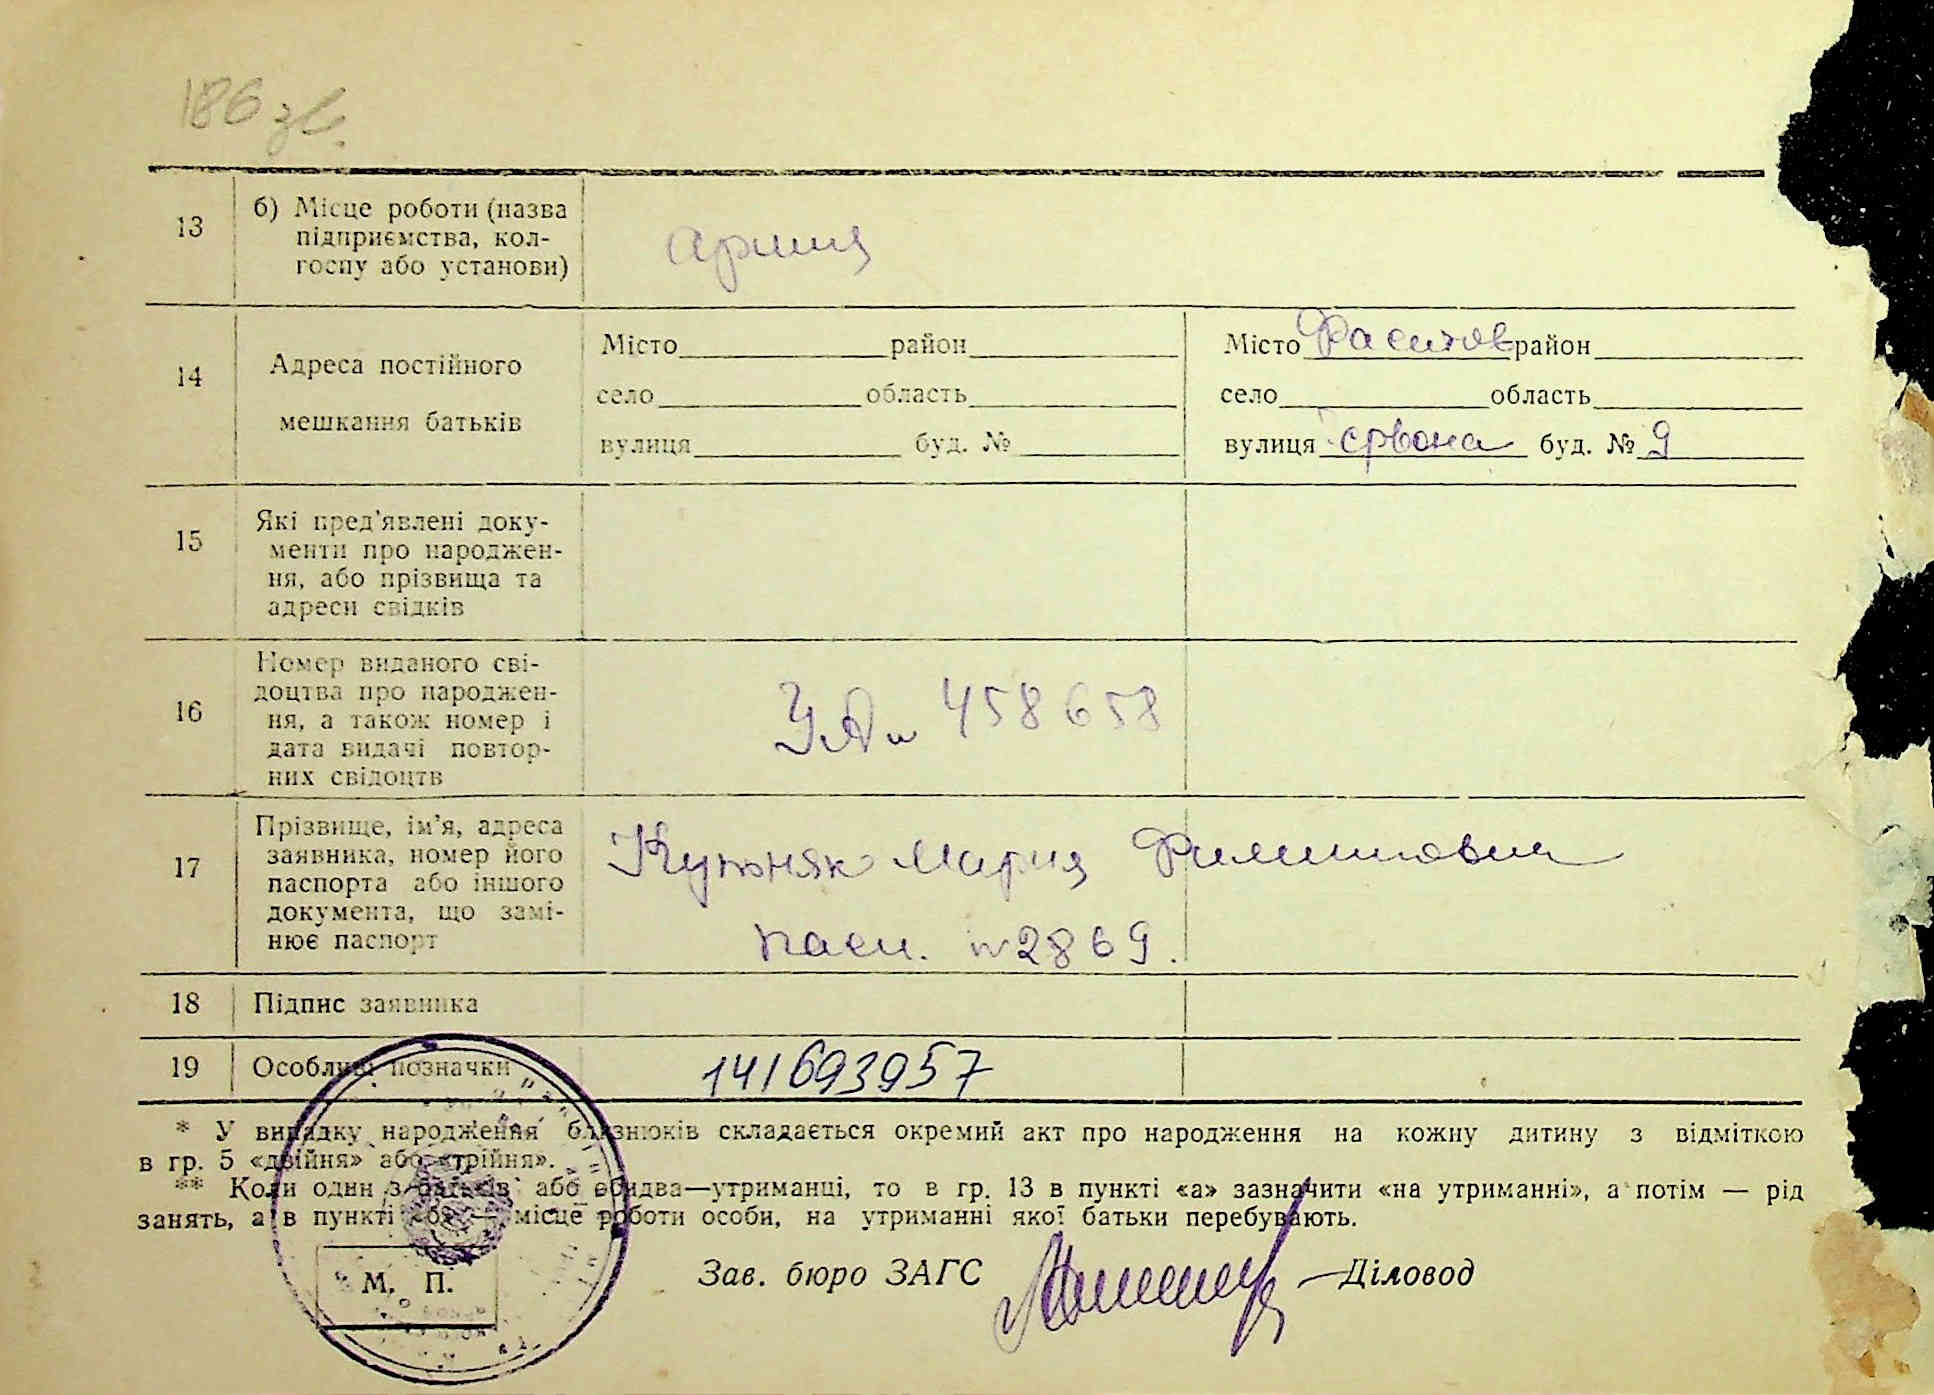 186 зв.
13 б) Місце роботи (назва
підприємства, кол-
госпу або установи)
армия
14 Адреса постійного
мешкання батьків
Місто район
село область
вулиця буд. №
Місто Фастов район
село область
вулиця Червона буд. № 9
15 Які пред'явлені доку-
менти про народжен-
ня, або прізвища та
адреси свідків
16 Номер виданого сві-
доцтва про народжен-
ня, а також номер і
дата видачі повтор-
них свідоцтв
458658
17 Прізвище, ім'я, адреса
заявника, номер його
паспорта або іншого
документа, що замі-
нює паспорт
Мария
пасп. №2869.
18 Підпис заявника
19 Особливі позначки
141693957
* У випадку народження близнюків складається окремий акт про народження на кожну дитину з відміткою
в гр. 5 «двійня» або «трійня».
** Коли один з батьків або обидва—утриманці, то в гр. 13 в пункті «а» зазначити «на утриманні», а потім — рід
занять, а в пункті «б» — місце роботи особи, на утриманні якої батьки перебувають.
М. П.
Зав. бюро ЗАГС
Діловод